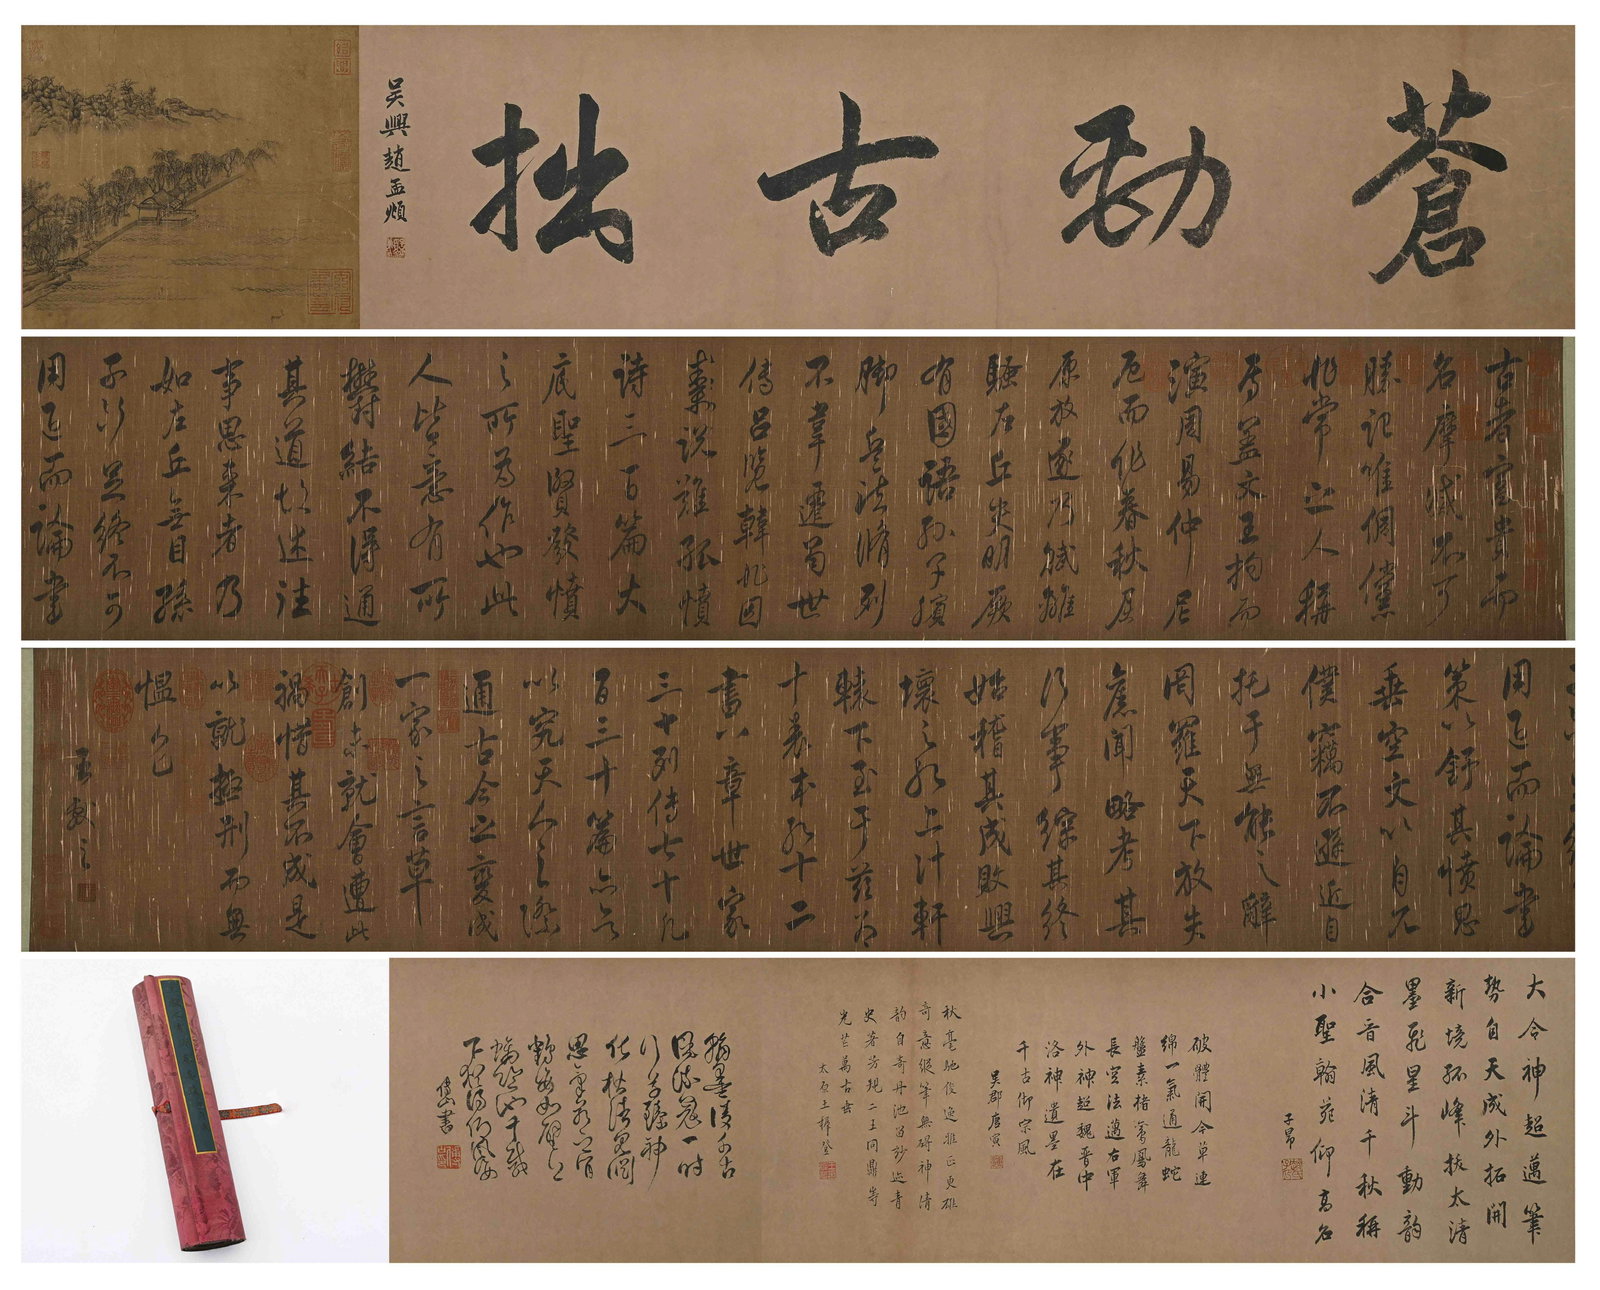 蒼勁古拙
吳興趙孟頫
古者富貴而
名摩滅不可
勝記唯倜儻
非常之人稱
焉蓋文王拘而
演周易仲尼
厄而作春秋屈
原放逐乃賦離
騷左丘失明厥
有國語孫子臏
腳兵法脩列
不韋遷蜀世
傳呂覽韓非囚
秦說難孤憤
詩三百篇大
底聖賢發憤
之所為作也此
人皆意有所
鬱結不得通
其道故述往
事思來者乃
如左丘無目孫
子斷足終不可
用退而論書
用退而論書
策以舒其憤思
垂空文以自見
僕竊不遜近自
托于無能之辭
罔羅天下放失
舊聞略考其
行事綜其終
始稽其成敗興
壞之紀上計軒
轅下至于茲為
十表本紀十二
書八章世家
三十列傳七十凡
百三十篇亦欲
以究天人之際
通古今之變成
一家之言草
創未就會遭此
禍惜其不成是
以就極刑而無
慍色
王獻之
大令神超邁筆
勢自天成外拓開
新境孤峰拔太清
墨飛星斗動韵
合音風清千秋稱
小聖翰苑仰高名
子昂
破體開今草連
綿一氣通龍蛇
盤素楮鸞鳳舞
長空法邁右軍
外神超魏晉中
洛神遺墨在
千古仰宗風
吳郡唐寅
秋毫馳俊逸雅正更雄
奇意縱筆無礙神清
韵自奇丹池留妙迹青
史著芳規二王同鼎峙
光芒萬古垂
太原王穉登
翰墨淩千古
風流冠一時
行草臻神
化
傅山書